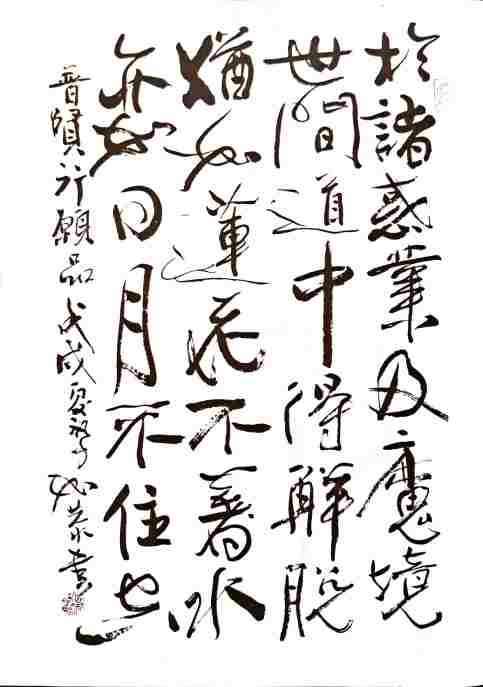 於諸惑業及魔境
世間道中得解脫
猶如蓮花不著水
亦如日月不住空
普賢行願品戊戌夏 書